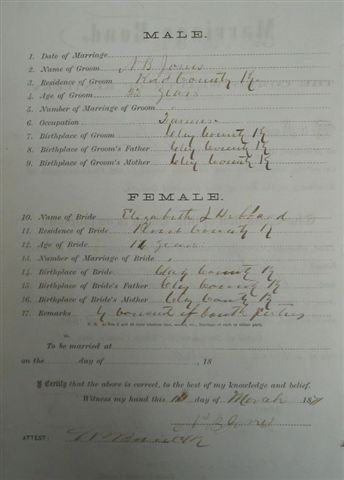 MALE.
1. Date of Marriage
2. Name of Groom N B Jones
3. Residence of Groom Knox County Ky
4. Age of Groom years
5. Number of Marriage of Groom
6. Occupation Farmer
7. Birthplace of Groom Clay County Ky
8. Birthplace of Groom's Father Clay County Ky
9. Birthplace of Groom's Mother Clay County Ky
FEMALE.
10. Name of Bride Elizabeth J Hibbard
11. Residence of Bride Knox County K
12. Age of Bride years
13. Number of Marriage of Bride
14. Birthplace of Bride Clay County Ky
15. Birthplace of Bride's Father Clay County Ky
16. Birthplace of Bride's Mother Clay County Ky
17. Remarks By consent of both Parties
To be married at
on the day of , 18
I Certify that the above is correct, to the best of my knowledge and belief.
Witness my hand this day of March 187
B Jones
ATTEST: